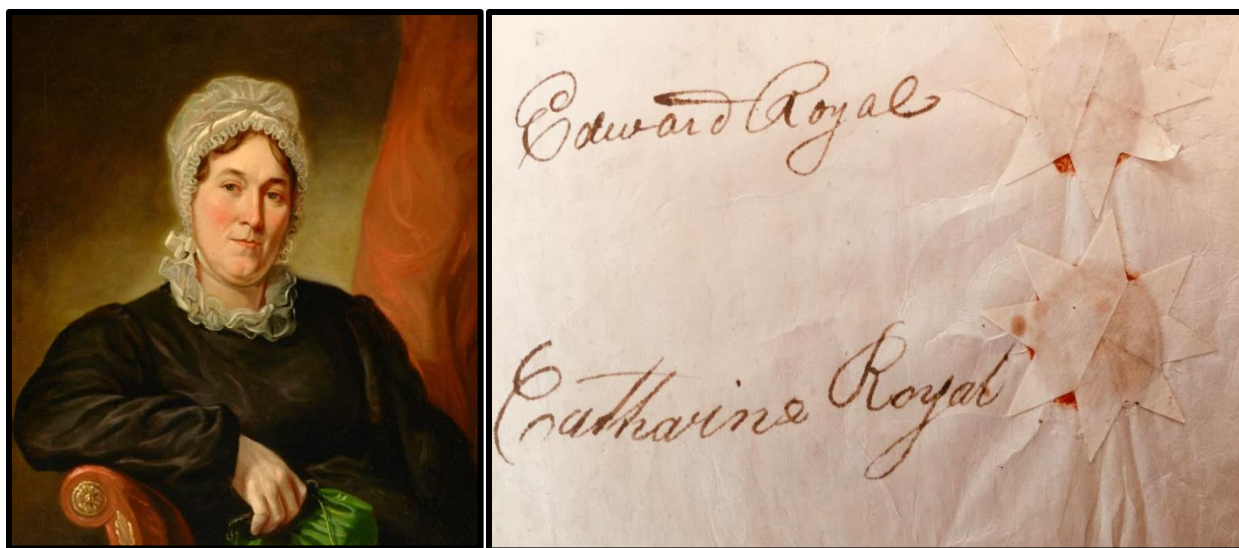 Edward Royal
Catharine Royal